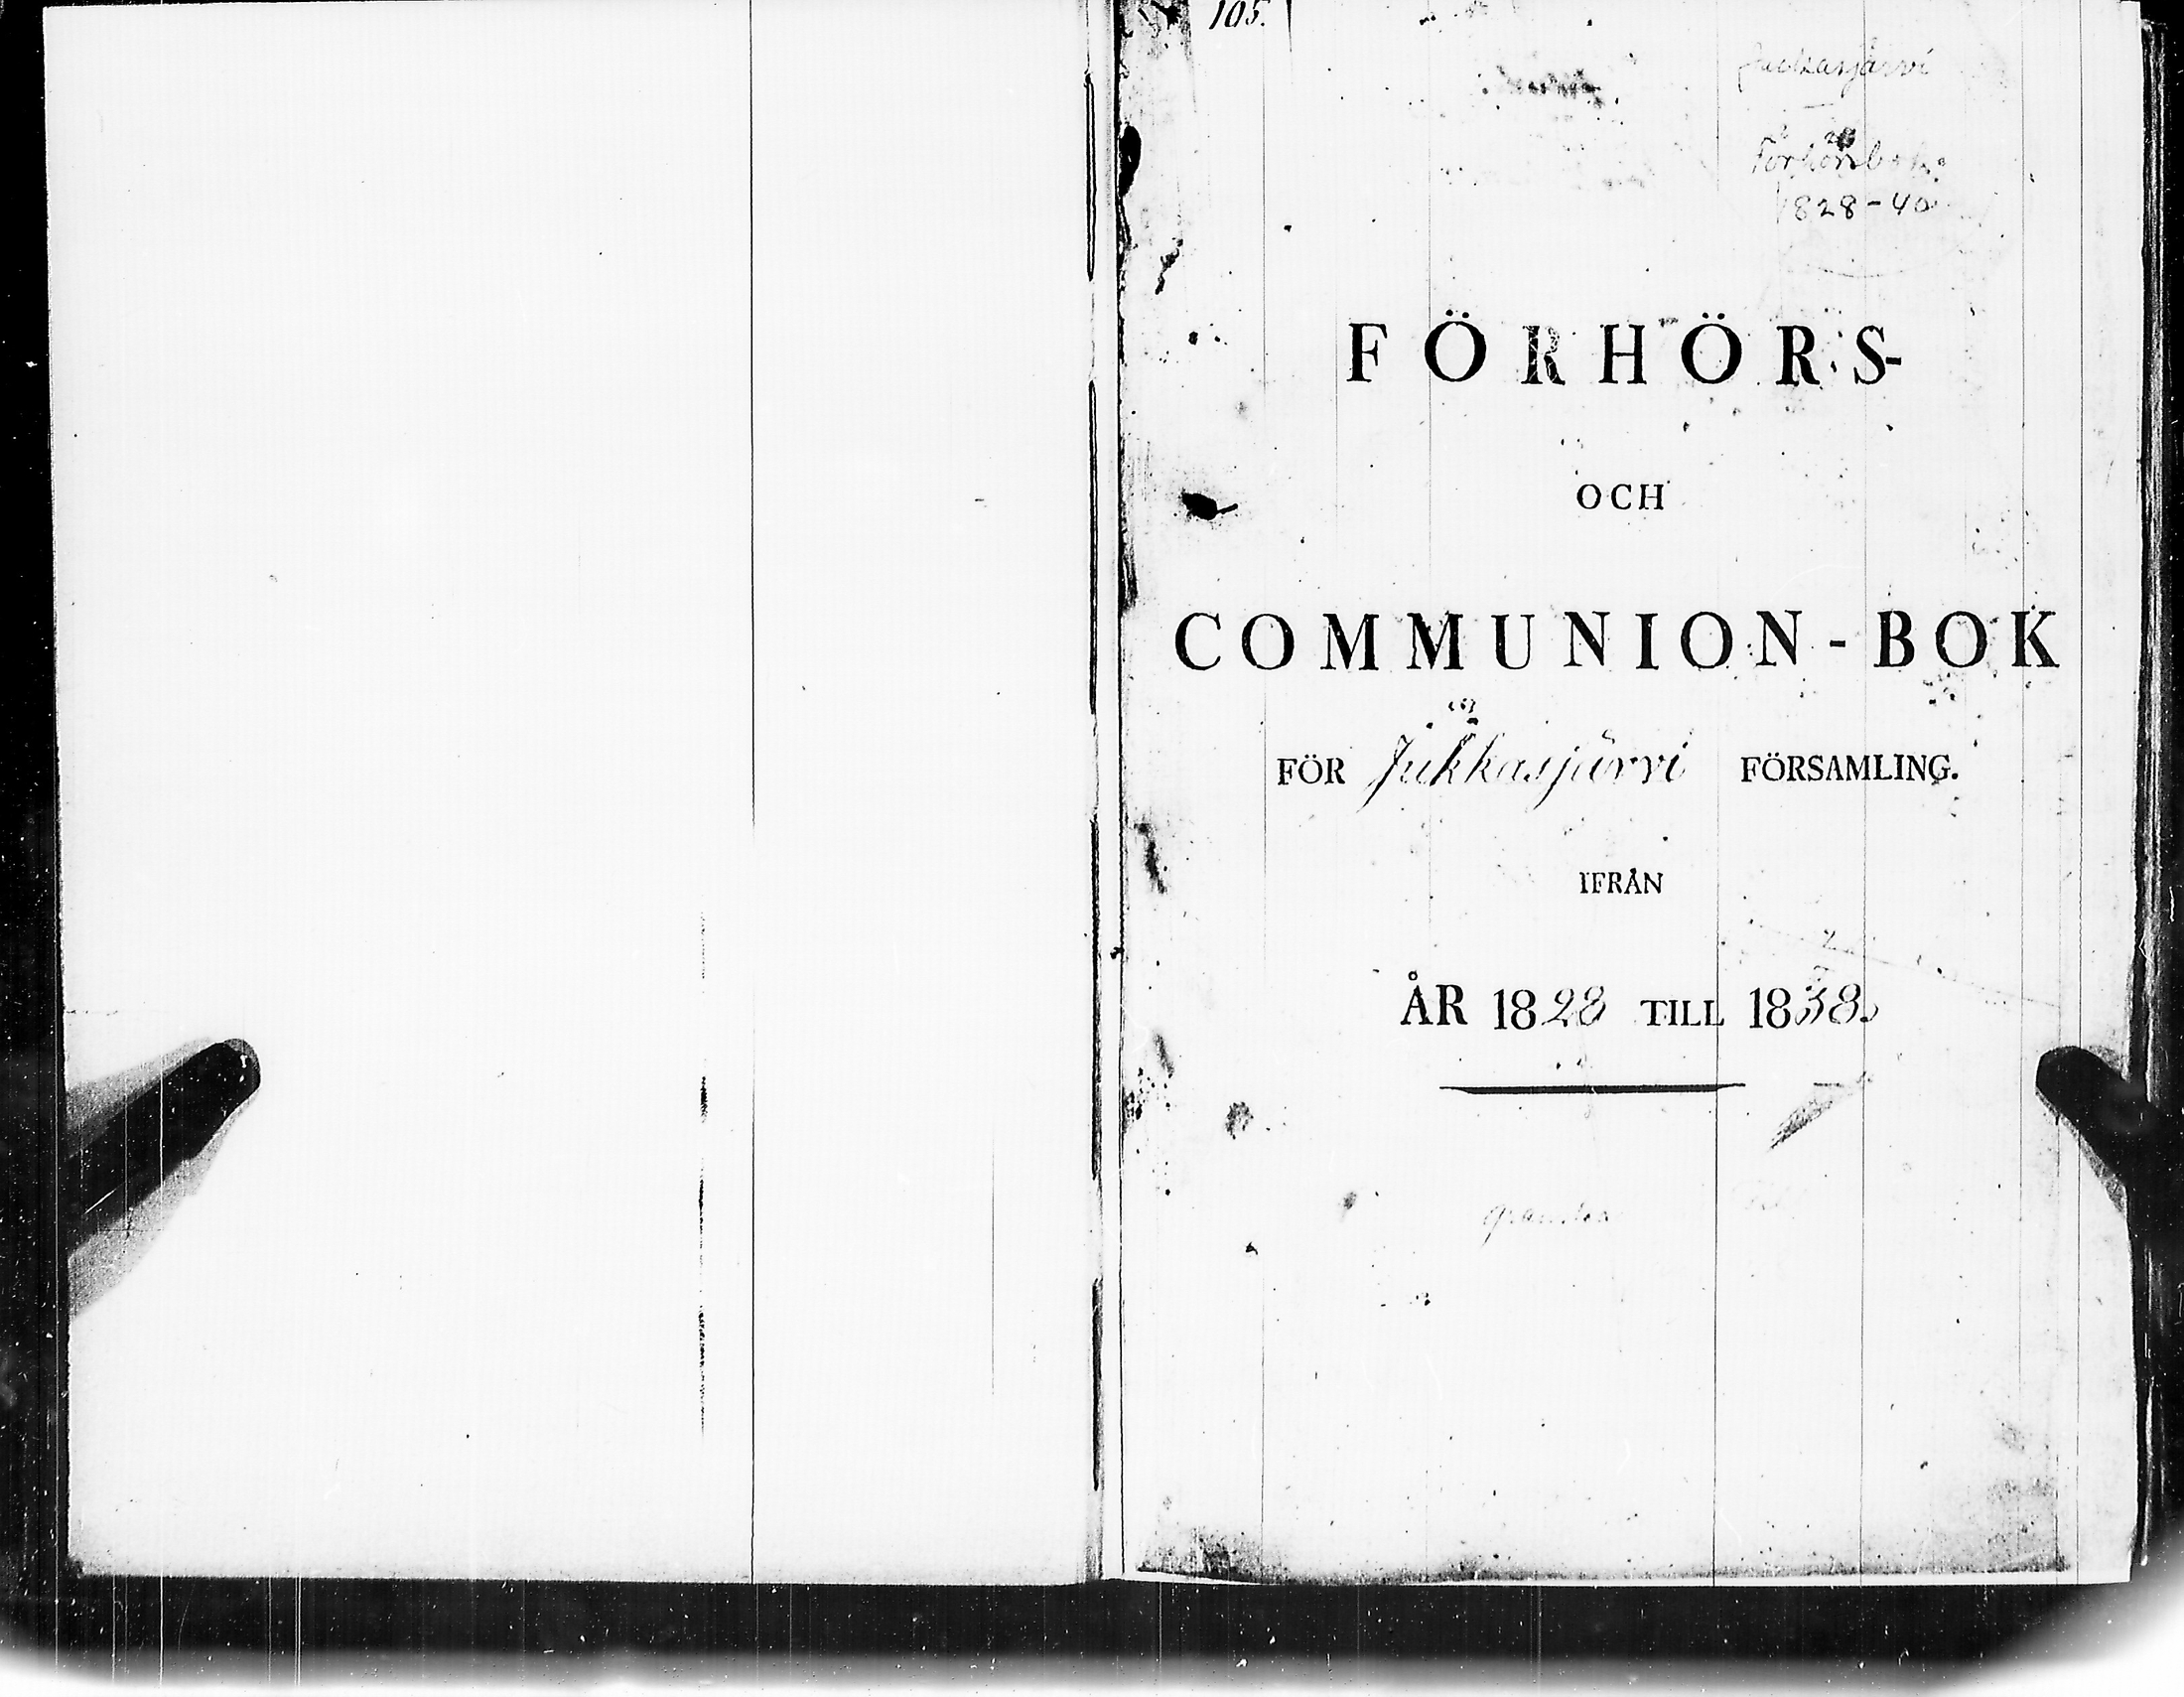 105.
Juckasjärvi
Förhörsbok
1828-40
FÖRHÖRS-
OCH
COMMUNION-BOK
FÖR Jukkasjärvi FÖRSAMLING.
IFRÅN
ÅR 1828 TILL 1838.